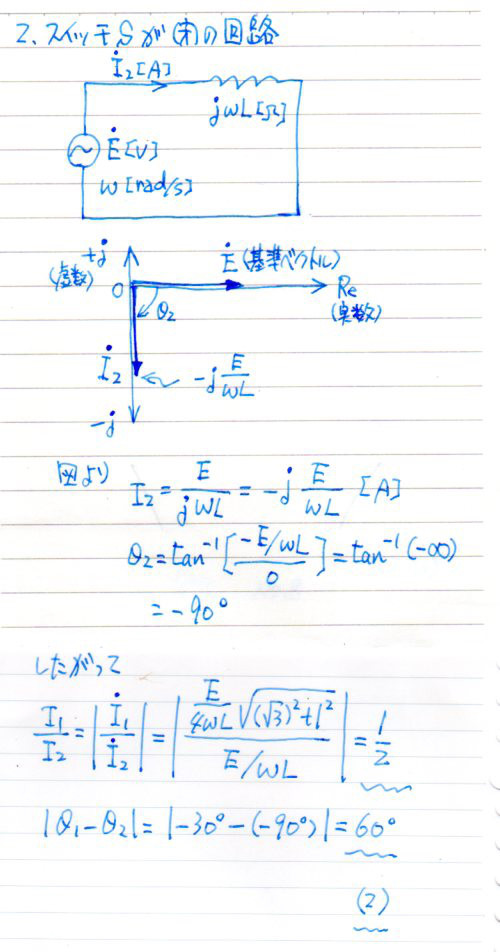 2. スイッチSが(閉)の回路
İ₂[A]
jωL[Ω]
Ė[V]
ω[rad/s]
+j
(虚数)
Ė(基準ベクトル)
O
θ₂
Re
(実数)
İ₂
-j E/ωL
-j
図より I₂ = E/jωL = -j E/ωL [A]
θ₂ = tan⁻¹[(-E/ωL)/0] = tan⁻¹(-∞)
= -90°
したがって
I₁/I₂ = |İ₁/İ₂| = |(E/4ωL √((√3)²+1²))/(E/ωL)| = 1/2
|θ₁-θ₂| = |-30°-(-90°)| = 60°
(2)